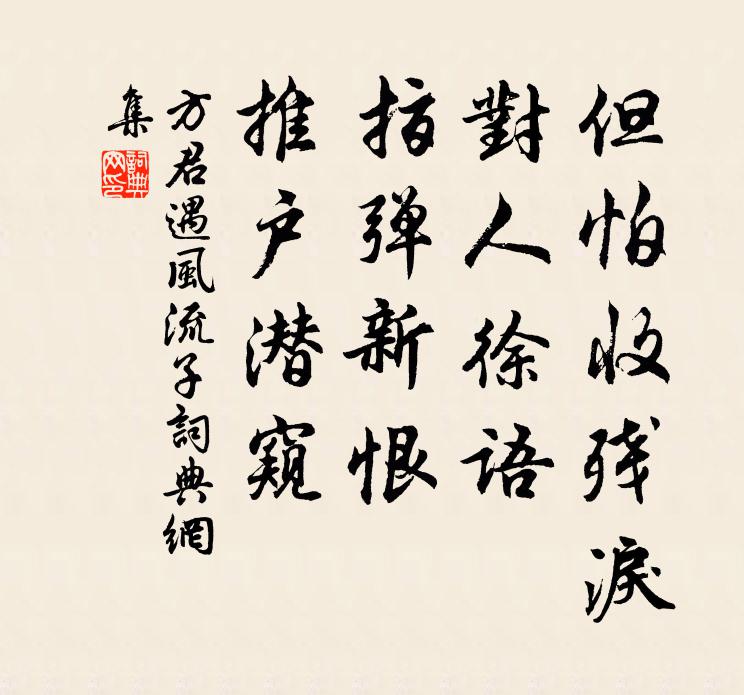 但怕收残淚
對人徐语
指弹新恨
推户潜窺
方君遇風流子詞典網
集
詞典网印